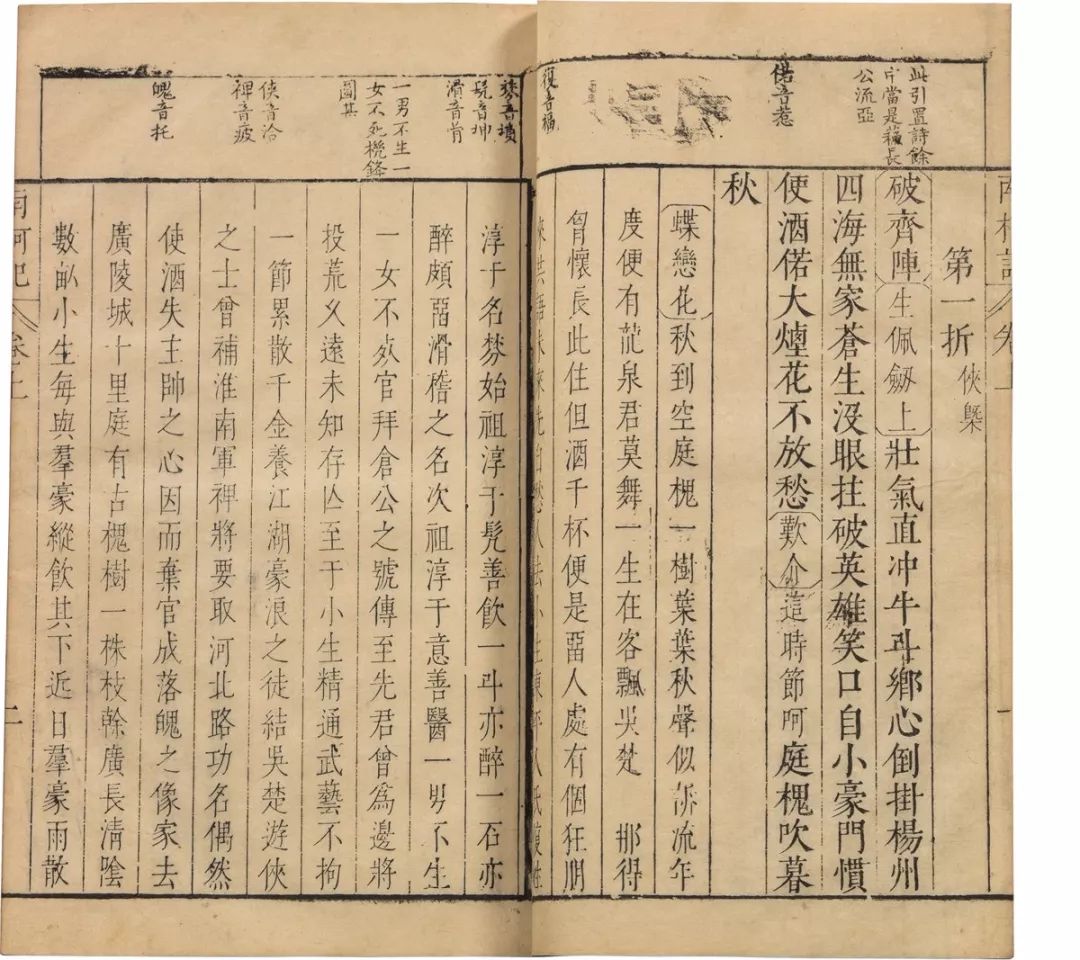 此引置詩餘
中當是蘓長
公流亞
偌音惹
復音福
南柯記 卷上 一
第一折 俠槩
破齊陣 生佩劒上 壯氣直冲牛斗鄉心倒掛楊州
四海無家蒼生沒眼拄破英雄笑口自小豪門慣
使酒偌大煙花不放愁 歎介 這時節呵庭槐吹暮
秋
蝶戀花 秋到空庭槐一樹葉葉秋聲似訴流年
度便有龍泉君莫舞一生在客飄吳楚 那得
胷懷長此住但酒千杯便是畱人處有個狂朋
人去小生東平人氏複姓
棼音墳
髡音坤
滑音骨
一男不生一
女不死機鋒
圖甚
俠音洽
裨音疲
魄音托
淳于名棼始祖淳于髡善飲一斗亦醉一石亦
醉頗畱滑稽之名次祖淳于意善醫一男不生
一女不死官拜倉公之號傳至先君曾爲邊將
投荒乆遠未知存亡至于小生精通武藝不拘
一節累散千金養江湖豪浪之徒結吳楚遊俠
之士曾補淮南軍裨將要取河北路功名偶然
使酒失主帥之心因而棄官成落魄之像家去
廣陵城十里庭有古槐樹一株枝幹廣長清陰
數畝小生每與羣豪縱飲其下近日羣豪雨散
南柯記 卷上 二